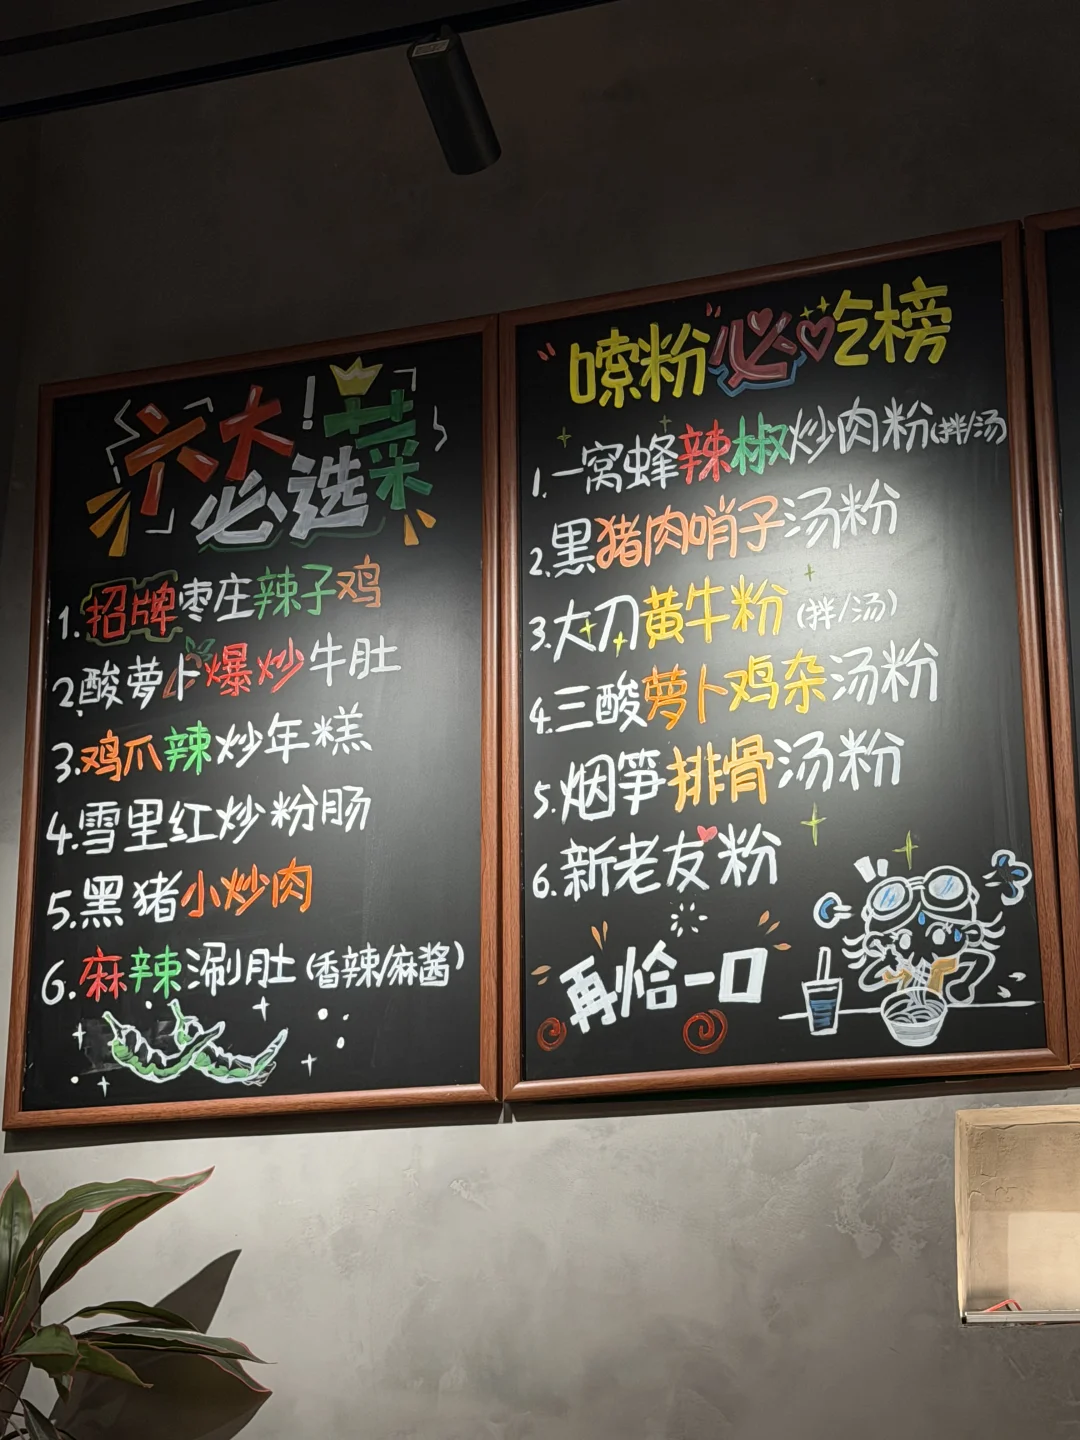 六大!
必选菜
1.招牌枣庄辣子鸡
2.酸萝卜爆炒牛肚
3.鸡爪辣炒年糕
4.雪里红炒粉肠
5.黑猪小炒肉
6.麻辣涮肚(香辣/麻酱)
嗦粉必吃榜
1.一窝蜂辣椒炒肉粉(拌/汤)
2.黑猪肉哨子汤粉
3.大刀黄牛粉(拌/汤)
4.三酸萝卜鸡杂汤粉
5.烟笋排骨汤粉
6.新老友粉
再恰一口